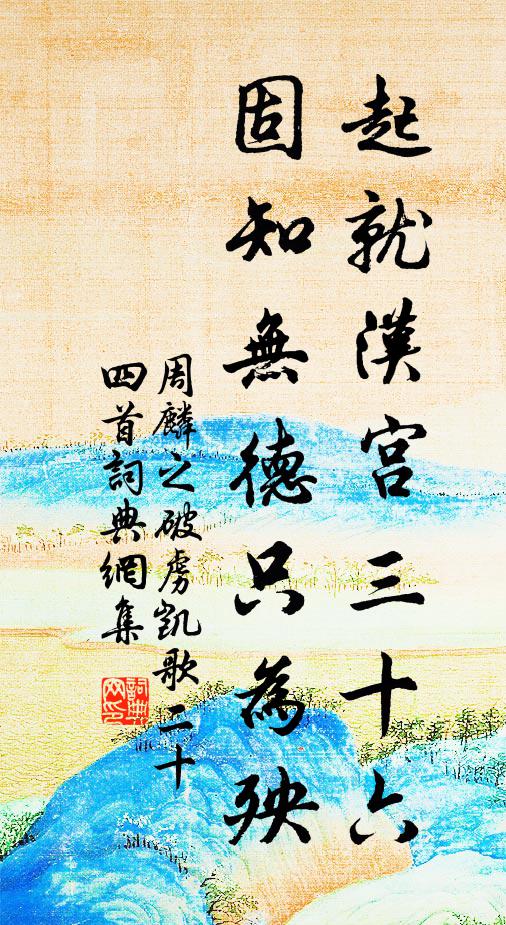 起就漢宮三十六
固知無德只為殃
周麟之破虜凱歌二十
四首詞典網集
詞典網印